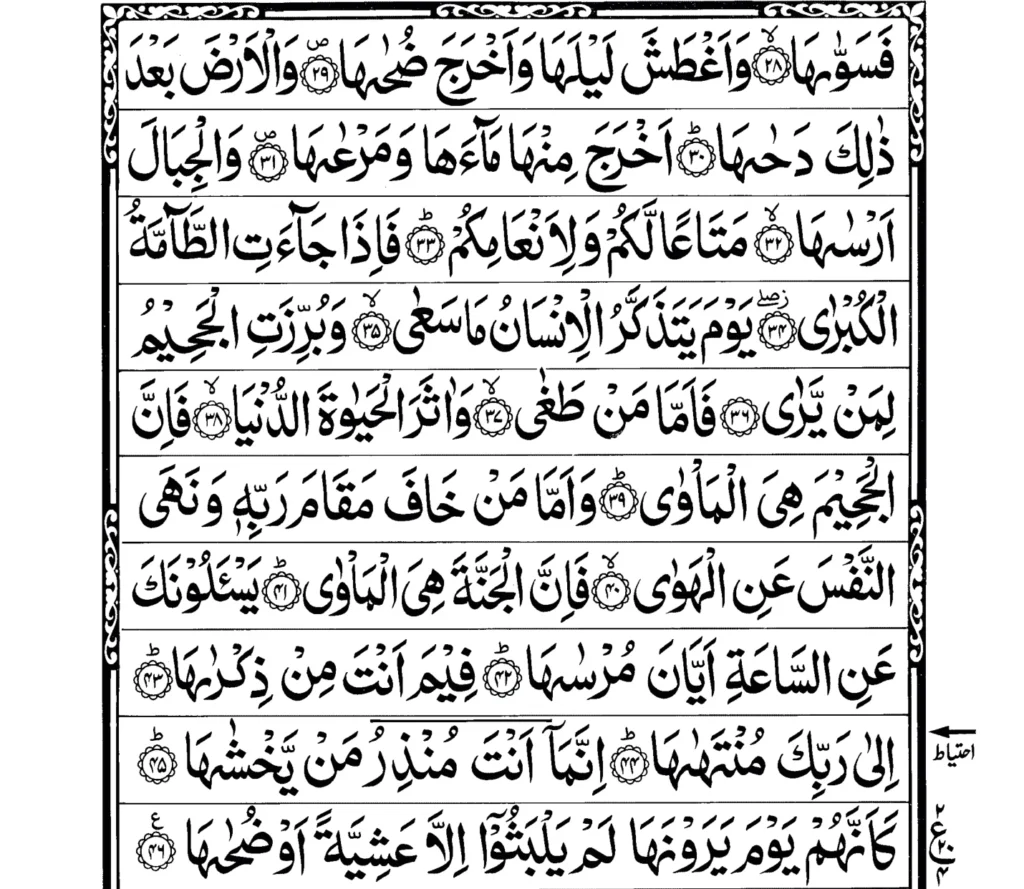 فَسَوّٰىهَا ۙ﴿۲۸﴾ وَاَغْطَشَ لَيْلَهَا وَاَخْرَجَ ضُحٰىهَا ۪﴿۲۹﴾ وَالْاَرْضَ بَعْدَ
ذٰلِكَ دَحٰىهَا ؕ﴿۳۰﴾ اَخْرَجَ مِنْهَا مَآءَهَا وَمَرْعٰىهَا ۪﴿۳۱﴾ وَالْجِبَالَ
اَرْسٰىهَا ۙ﴿۳۲﴾ مَتَاعًا لَّكُمْ وَلِاَنْعَامِكُمْ ؕ﴿۳۳﴾ فَاِذَا جَآءَتِ الطَّآمَّةُ
الْكُبْرٰى ۖ﴿۳۴﴾ يَوْمَ يَتَذَكَّرُ الْاِنْسَانُ مَا سَعٰى ۙ﴿۳۵﴾ وَبُرِّزَتِ الْجَحِيْمُ
لِمَنْ يَّرٰى ﴿۳۶﴾ فَاَمَّا مَنْ طَغٰى ۙ﴿۳۷﴾ وَاٰثَرَ الْحَيٰوةَ الدُّنْيَا ۙ﴿۳۸﴾ فَاِنَّ
الْجَحِيْمَ هِيَ الْمَاْوٰى ؕ﴿۳۹﴾ وَاَمَّا مَنْ خَافَ مَقَامَ رَبِّهٖ وَنَهَى
النَّفْسَ عَنِ الْهَوٰى ۙ﴿۴۰﴾ فَاِنَّ الْجَنَّةَ هِيَ الْمَاْوٰى ؕ﴿۴۱﴾ يَسْـَٔلُوْنَكَ
عَنِ السَّاعَةِ اَيَّانَ مُرْسٰىهَا ؕ﴿۴۲﴾ فِيْمَ اَنْتَ مِنْ ذِكْرٰىهَا ؕ﴿۴۳﴾
اِلٰى رَبِّكَ مُنْتَهٰىهَا ؕ﴿۴۴﴾ اِنَّمَآ اَنْتَ مُنْذِرُ مَنْ يَّخْشٰىهَا ؕ﴿۴۵﴾
احتیاط
كَاَنَّهُمْ يَوْمَ يَرَوْنَهَا لَمْ يَلْبَثُوْٓا اِلَّا عَشِيَّةً اَوْ ضُحٰىهَا ﴿۴۶﴾ع
۲
ع
۲۰
۴